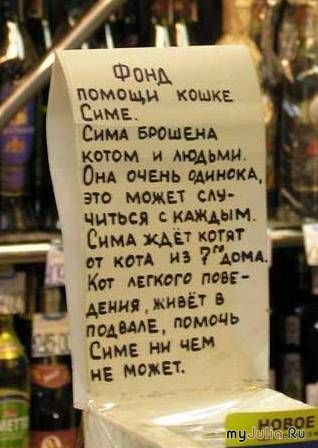 Фонд
помощи кошке
Симе.
Сима брошена
котом и людьми.
Она очень одинока,
это может слу-
читься с каждым.
Сима ждёт котят
от кота из 7го дома.
Кот легкого пове-
дения, живёт в
подвале, помочь
Симе ни чем
не может.
НОВОЕ
myJulia.Ru